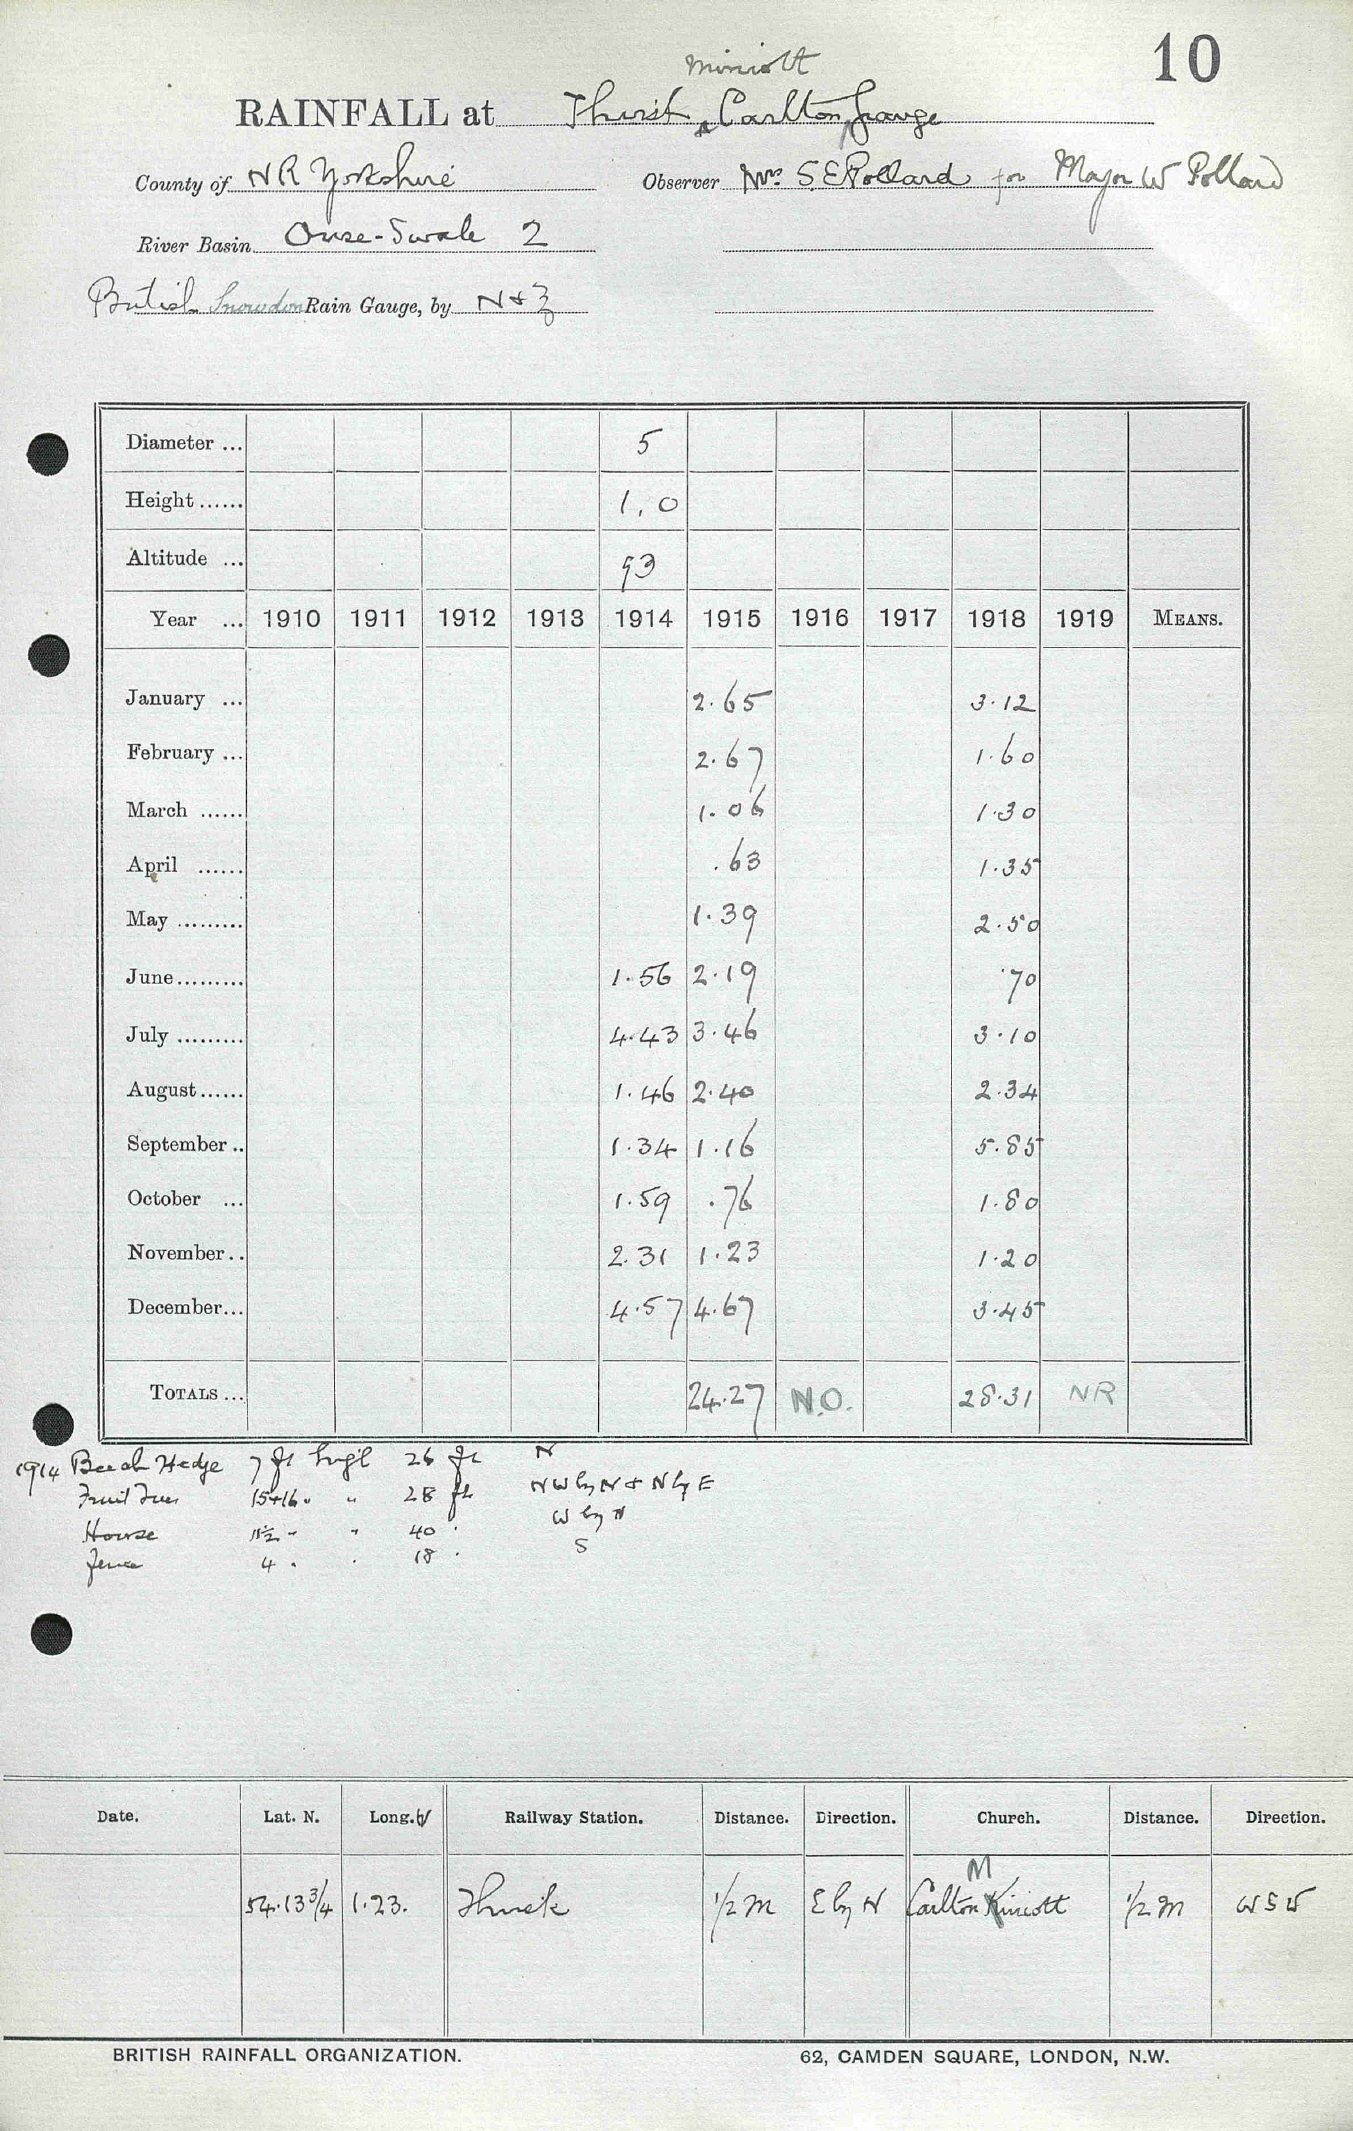 10
Miniott
RAINFALL at Thirsk, Carlton, Grange
County of N R Yorkshire Observer Mrs S. E Pollard for Major W Pollard
River Basin Ouse-Swale 2
British Snowdon Rain Gauge, by N & Z
Diameter ... 5
Height ...... 1,0
Altitude ... 93
Year ... 1910 1911 1912 1913 1914 1915 1916 1917 1918 1919 MEANS.
January ... 2.65 3.12
February ... 2.67 1.60
March ...... 1.06 1.30
April ...... .63 1.35
May ......... 1.39 2.50
June ......... 1.56 2.19 .70
July ......... 4.43 3.46 3.10
August ...... 1.46 2.40 2.34
September .. 1.34 1.16 5.85
October ... 1.59 .76 1.80
November .. 2.31 1.23 1.20
December ... 4.57 4.67 3.45
TOTALS ... 24.27 N.O. 28.31 NR
1914 Beech Hedge 7 ft high 26 ft N
Fruit Trees 15+16 " " 28 ft NW by N & N by E
House 11½ " " 40 " W by N
Fence 4 " " 18 " S
Date. Lat. N. Long. W Railway Station. Distance. Direction. Church. Distance. Direction.
M
54.13¾ 1.23. Thirsk ½ M E by N Carlton Kiniott ½ M WSW
BRITISH RAINFALL ORGANIZATION. 62, CAMDEN SQUARE, LONDON, N.W.